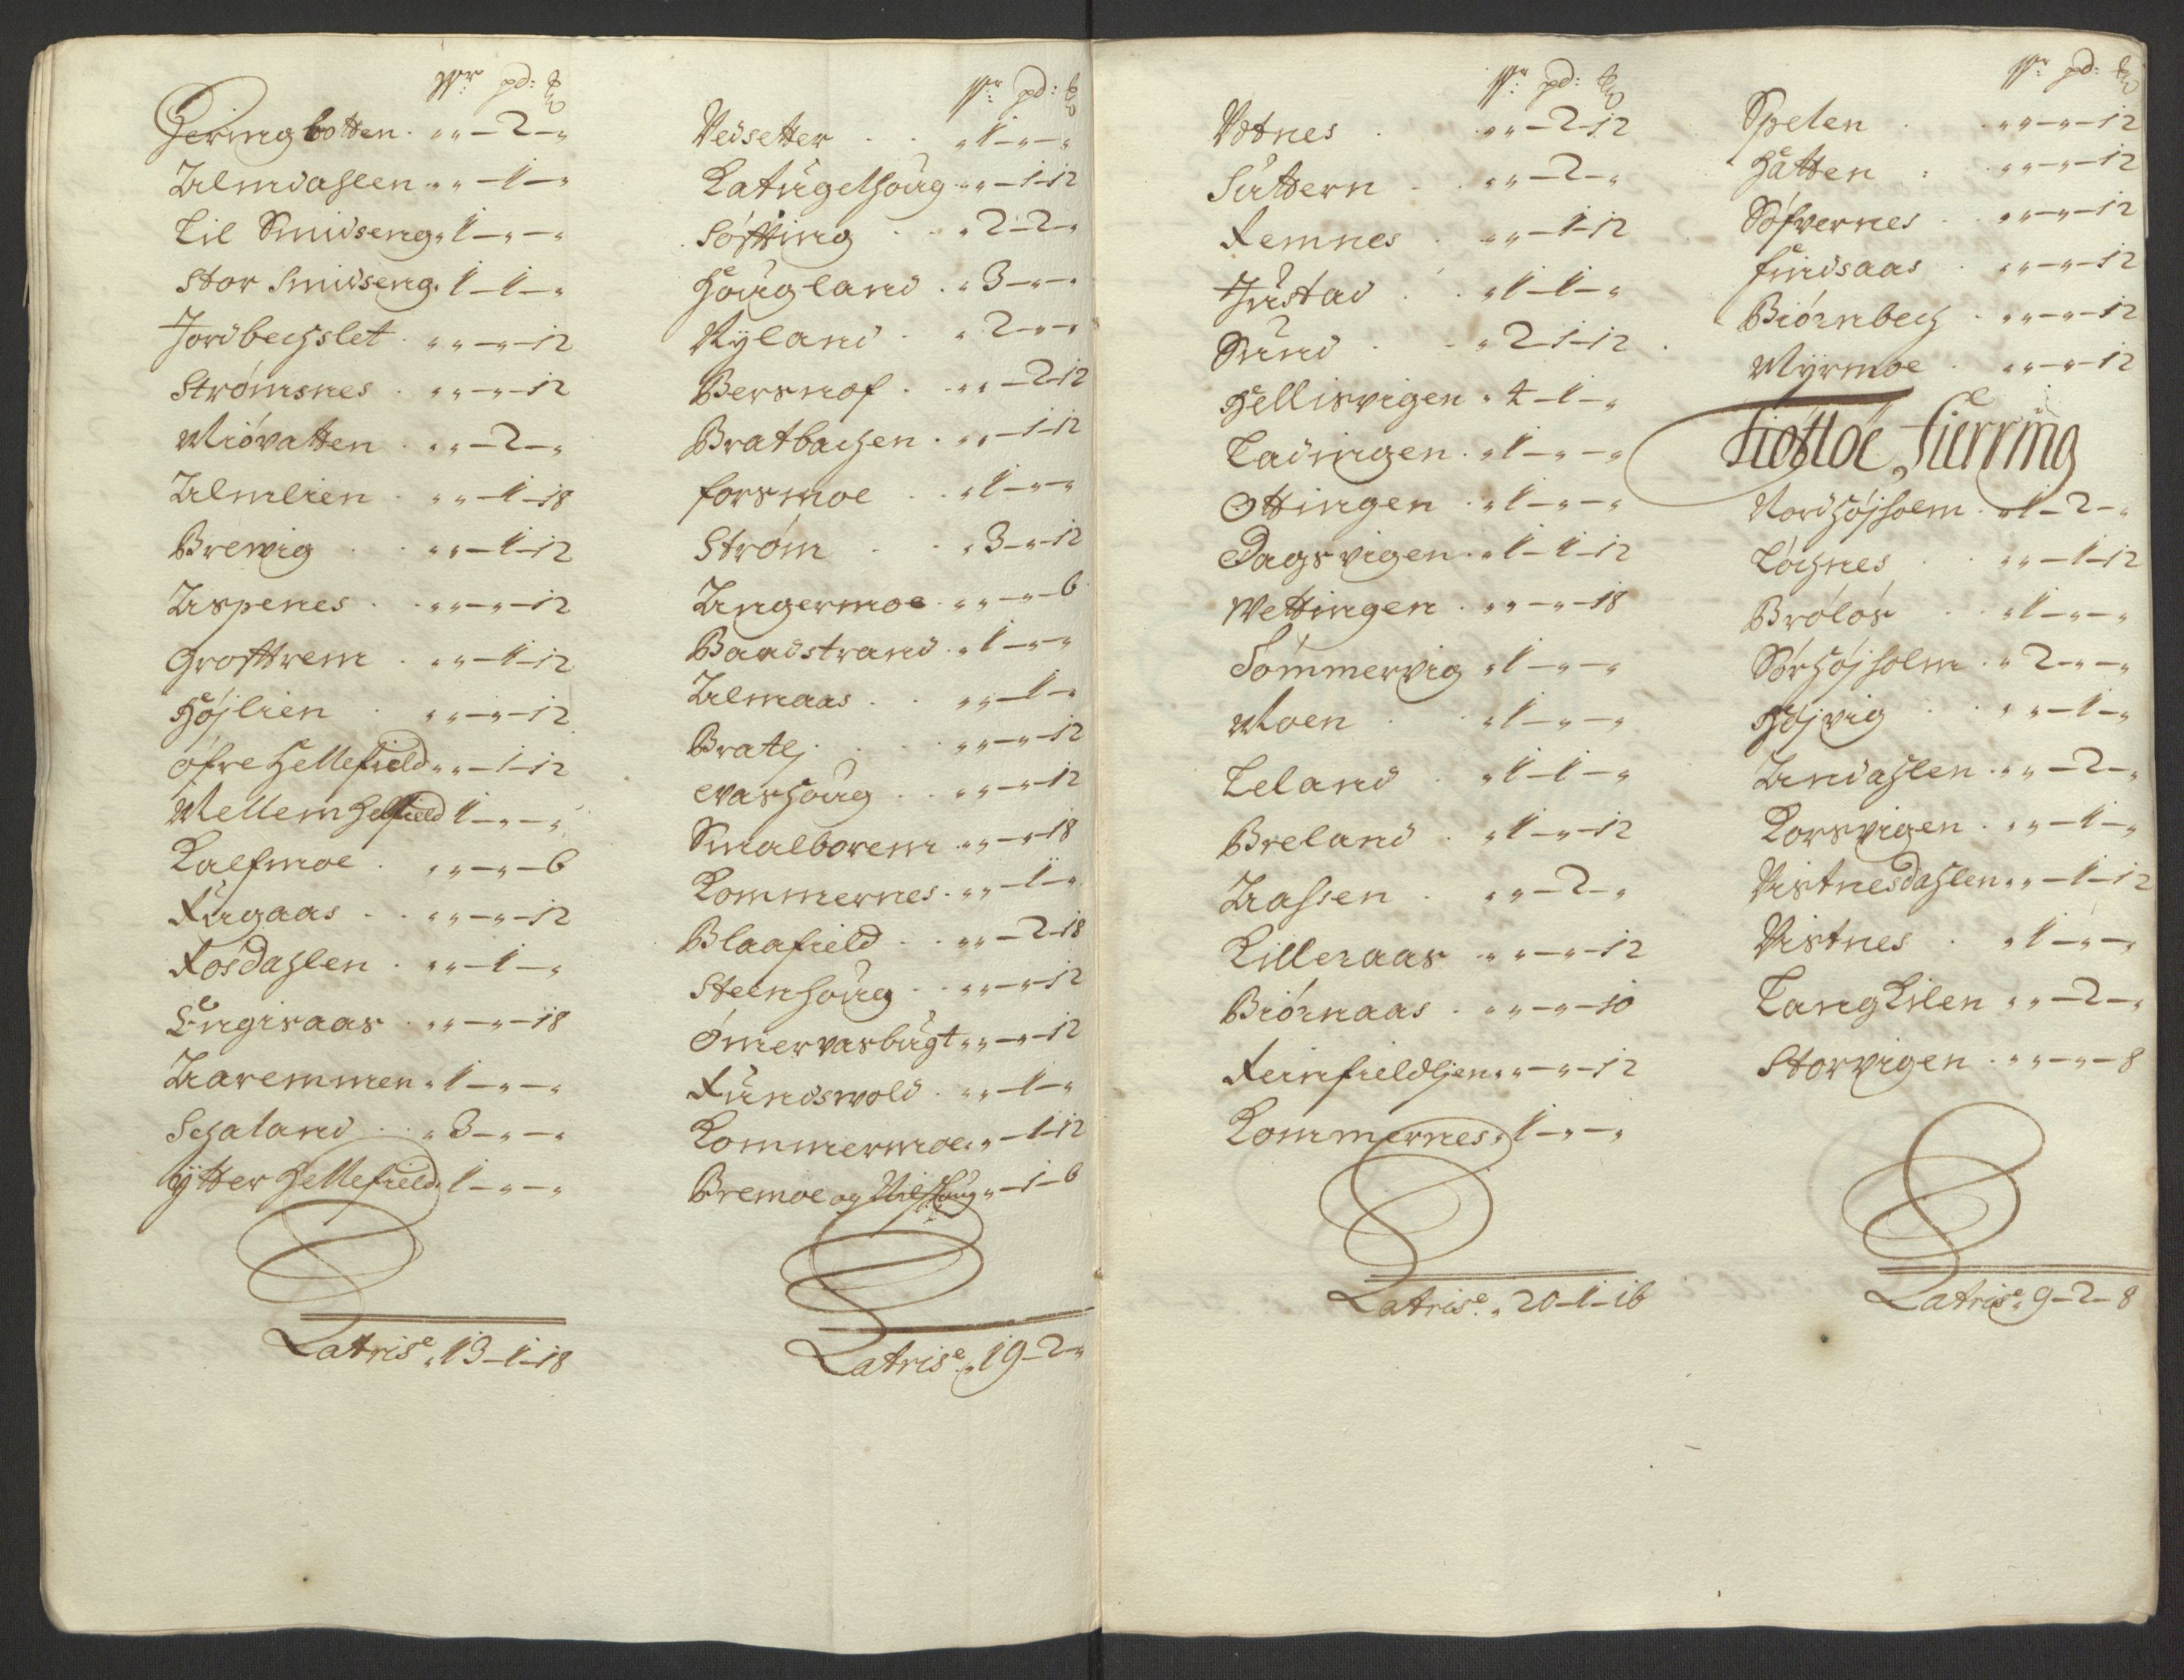 Wr: pd: ℔
Heringbotten. „ „ – 2 – „
Almdahlen „ „ – 1 – „
Lil Smidseng „ 1 – „ – „
Stor Smidseng. 1 – 1 – „
Jordbechslet. „ „ – „ – 12
Strømsnes. „ „ – „ – 12
Miövatten. „ „ – 2 – „
Almlien. „ „ – 1 – 18
Brevig „ „ – 1 – 12
Aspenes. „ „ – „ – 12
Grofttrem. „ „ – 1 – 12
Höjlien „ „ – „ – 12
öfre Hellefield „ „ – 1 – 12
Mellem Helfield 1 – „ – „
Kalfmoe. „ „ – „ – 6
Rugaas. „ „ – „ – 12
Rösdahlen. „ „ – 1 – „
Engisaas. „ „ – „ – 18
Aaremmen „ 1 – „ – „
Schaland „ 3 – „ – „
ytter Hellefield. 1 – „ – „
Latris^e „ 13 – 1 – 18
Wr: pd: ℔
Vedsetter „ 1 – „ – „
Katugelhoug „ „ – 1 – 12
Söfting „ 2 – 2 – „
Hougland. „ 3 – „ – „
Nyland. „ 2 – „ – „
Bersnof. „ „ – 2 – 12
Bratbachen. „ „ – 1 – 12
forsmoe „ 1 – „ – „
Strøm „ 3 – „ – 12
Angermoe „ „ – „ – 6
Baadstrand. „ 1 – „ – „
Almaas. „ „ – 1 – „
Bratlj. „ „ – „ – 12
Evashoug „ „ – „ – 12
Smalborem. „ „ – „ – 18
Kommernes. „ „ – 1 – „
Blaafield. „ „ – 2 – 18
Steenhoug „ „ – „ – 12
Ömervasbugt „ „ – „ – 12
Rundswold. „ „ – 1 – „
Kommermoe „ „ – 1 – 12
Bremoe og Nilshoug „ – 1 – 6
Latris^e „ 19 – 2 – „
Wr: pd: ℔
Votnes. „ „ – 2 – 12
Suttern. „ „ – 2 – „
Remnes. „ „ – 1 – 12
Justad. „ 1 – 1 – „
Sund. „ 2 – 1 – 12
Hellisvigen „ 4 – 1 – „
Ladingen. „ 1 – „ – „
Ottingen. „ 1 – „ – „
Dagsvigen. „ 1 – 1 – 12
Wettingen. „ „ – „ – 18
Sömmervig „ 1 – „ – „
Moen „ 1 – „ – „
Leland. „ 1 – 1 – „
Breland. „ 1 – „ – 12
Aassen. „ „ – 2 – „
Killeraas „ „ – „ – 12
Biörnaas. „ „ – „ – 10
Reinfieldljen „ „ – „ – 12
Kommernes. „ 1 – „ – „
Latris^e „ 20 – 1 – 16
Wr: pd: ℔
Spelen „ „ – „ – 12
Hatten „ „ – „ – 12
Söfvernes. „ „ – „ – 12
findsaas. „ „ – „ – 12
Biörnbech. „ „ – „ – 12
Myrmoe. „ „ – „ – 12
Tiöttöe Fierring
Nordhöjholm. „ 1 – 2 – „
Löchnes „ „ – 1 – 12
Brölös „ 1 – „ – „
Sörhöjholm. „ 2 – „ – „
Höjvig „ „ – 1 – „
Andahlen. „ „ – 2 – „
Korsvigen. „ „ – 1 – „
Vistnesdahlen „ „ – 1 – 12
Vistnes. „ 1 – „ – „
Langkilen „ „ – 2 – „
Storvigen. „ „ – „ – 8
Latris^e „ 9 – 2 – 8